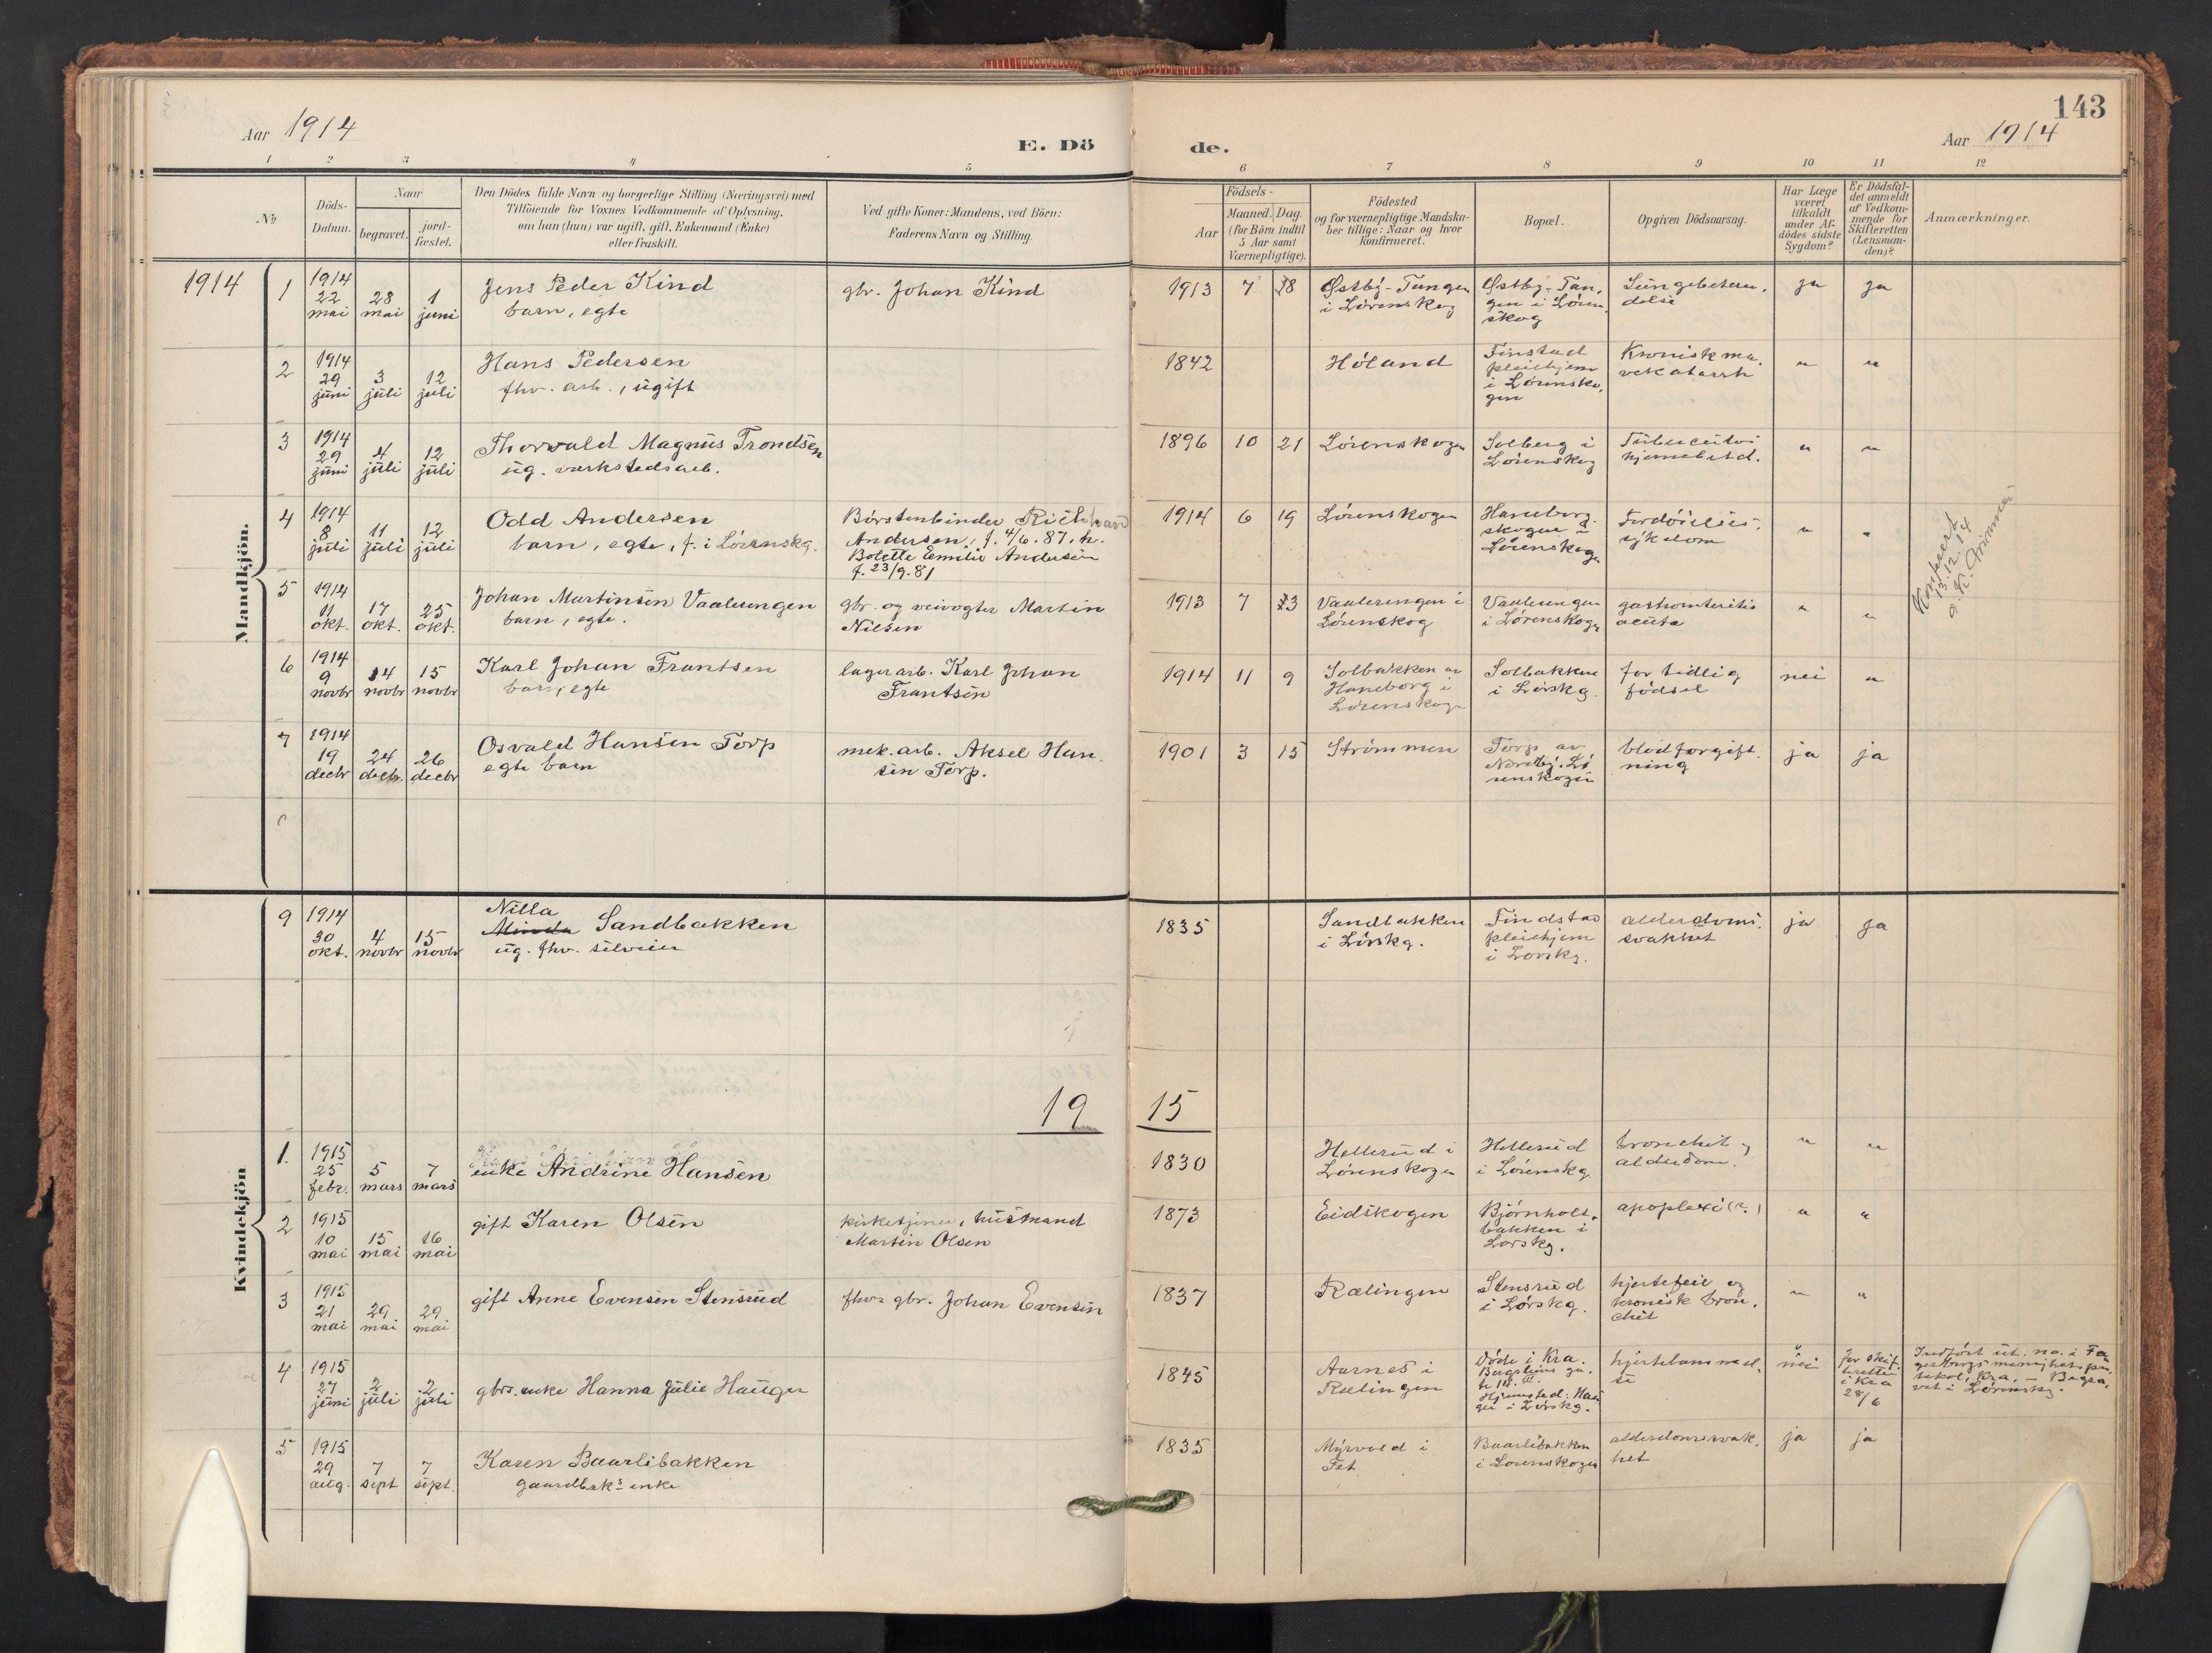 143
Aar 1914
E. Dö
de.
Aar 1914
1 2 3 4 5 6 7 8 9 10 11 12
No
Döds-
Datum.
Naar
begravet.
jord-
fæstet.
Den Dödes fulde Navn og borgerlige Stilling (Næringsvei) med
Tilföiende for Voxnes Vedkommende af Oplysning,
om han (hun) var ugift, gift, Enkemand (Enke)
eller fraskilt.
Ved gifte Koner: Mandens, ved Börn:
Faderens Navn og Stilling.
Födsels-
Aar
Maaned. Dag.
(for Börn indtil
5 Aar samt
Værnepligtige).
Födested
og for værnepligtige Mandska-
ber tillige: Naar og hvor
konfirmeret.
Bopæl.
Opgiven Dödsaarsag.
Har Læge
været
tilkaldt
under Af-
dödes sidste
Sygdom?
Er Dödsfal-
det anmeldt
af Vedkom-
mende for
Skifteretten
(Lensman-
den)?
Anmærkninger.
Mandkjön.
1914
1
1914
22
mai
28
mai
1
juni
Jens Peder Kind
barn, egte
gbr. Johan Kind
1913 7 18
Østby-Tangen
i Lørenskog
Østby-Tan,
gen i Løren,
skog
Lungebeten,
delse
ja ja
2
1914
29
juni
3
juli
12
juli
Hans Pedersen
fhv. arb., ugift
1842
Høland
Finstad
pleiehjem
i Lørensko,
gen
Kronisk ma,
vekatarrh
" "
3
1914
29
juni
4
juli
12
juli
Thorvald Magnus Trondsen
ug. verkstedsarb.
1896 10 21
Lørenskogen
Solberg i
Lørenskog
Tuberculosi
hjernebetd.
" "
4
1914
8
juli
11
juli
12
juli
Odd Andersen
barn, egte, f. i Lørenskg.
Børstenbinder Richard
Andersen, f. 4/6. 87. h.
Bolette Emilie Andersen
f. 23/9. 81
1914 6 19
Lørenskogen
Haneborg
skogen i
Lørenskogen
Fordøielses-
sykdom
" "
Konfereret
13.12.14
5
1914
11
okt.
17
okt.
25
okt.
Johan Martinsen Vaalerengen
barn, egte.
gbr. og veivogter Martin
Nilsen
1913 7 23
Vaalerengen i
Lørenskog
Vaalerengen
i Lørenskogen
gastroenteritis
acuta
" "
6
1914
9
novbr
14
novbr
15
novbr
Karl Johan Frantsen
barn, egte
lagerarb. Karl Johan
Frantsen
1914 11 9
Solbakken av
Haneborg i
Lørenskogen
Solbakken
i Lørskg.
for tidlig
fødsel
nei "
7
1914
19
decbr
24
decbr.
26
decbr
Osvald Hansen Torp
egte barn
mek. arb. Aksel Han,
sen Torp.
1901 3 15
Strømmen
Torp av
Nordby. Lø
renskogen
blodforgift,
ning
ja ja
Kvindekjön
9
1914
30
okt.
4
novbr
15
novbr
Nilla
Minda Sandbakken
ug. fhv. silveien
1835
Sandbakken
i Lørskg.
Findstad
pleiehjem
i Lørskg.
alderdoms,
svakhet
ja ja
19 15
1.
1915
25
febr.
5
mars
7
mars
enke Andrine Hansen
1830
Hellerud i
Lørenskogen
Hellerud
i Lørenskg
bronchit og
alderdom.
" "
2
1915
10
mai
15
mai
16
mai
gift Karen Olsen
kirketjener, husmand
Martin Olsen
1873
Eidskogen
Bjørnholt,
bakken i
Lørskg.
apoplexi (?)
" "
3
1915
21
mai
29
mai
29
mai
gift Anne Evensen Stensrud
fhv. gbr. Johan Evensen
1837
Rælingen
Stensrud
i Lørskg.
hjertefeil og
kronisk bron,
chit
" "
4
1915
27
juni
2
juli
2
juli
gbrs. enke Hanna Julie Hauger
1845
Aarnes i
Rælingen
Døde i Kra.
Bergsliens ga,
te 14. III.
Hjemsted: Hau
ger i Lørskg.
hjertelammel,
se
nei
for skif,
teretten
i Kra
28/6
Indført ut. no. i Fa
gerborgs menighets pro,
tokol, Kra. – Begra,
vet i Lørenskg.
5
1915
29
aug.
7
sept
7
sept.
Karen Baarlibakken
gaardbrks enke
1835
Myrvold i
Fet
Baarlibakken
i Lørenskogen
alderdomssvak,
het
ja ja